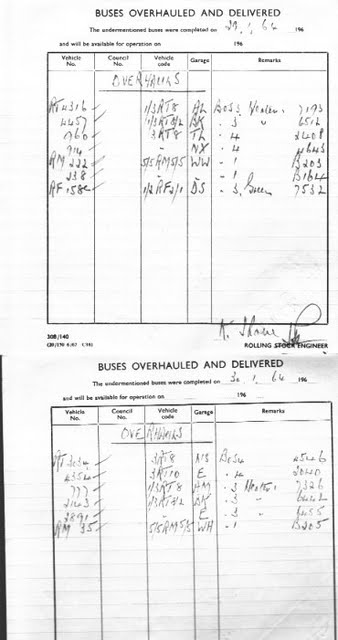 BUSES OVERHAULED AND DELIVERED
The undermentioned buses were completed on 29.1.64 196
and will be available for operation on 196
Vehicle No. Council No. Vehicle code Garage Remarks
OVERHAULS
RT 4316 1/3RT8 AL BOS3 Heater. 7193
4457 1/3RT8/2 BK - 3 " 6512
960 3RT8 TL - 4 2408
914 - NX - 4 4643
RM 222 5/5RM5/5 WW - 1 B203
238 - - - 1 B164
RF 158 1/2RF2/1 DS - 3, Green 7532
ROLLING STOCK ENGINEER
30B/140
BUSES OVERHAULED AND DELIVERED
The undermentioned buses were completed on 30.1.64 196
and will be available for operation on 196
Vehicle No. Council No. Vehicle code Garage Remarks
OVERHAULS
RT 3034 3RT8 NS BOS4 4546
4354 3RT10 E - 4 2040
777 1/3RT8 AM - 3 Heater. 7326
2143 1/3RT8/2 BK - 3 "
2891 - E - 3 " 6455
RM 35 5/5RM5/5 WH - 1 B205